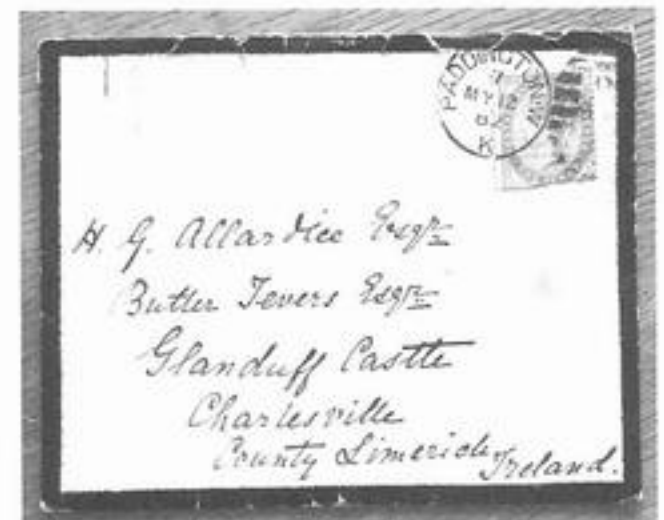 PADDINGTON.W
7
MY 12
82
K
H. G. Allardice Esqre
Butler Tevers Esqre
Glanduff Castle
Charlesville
County Limerick Ireland.